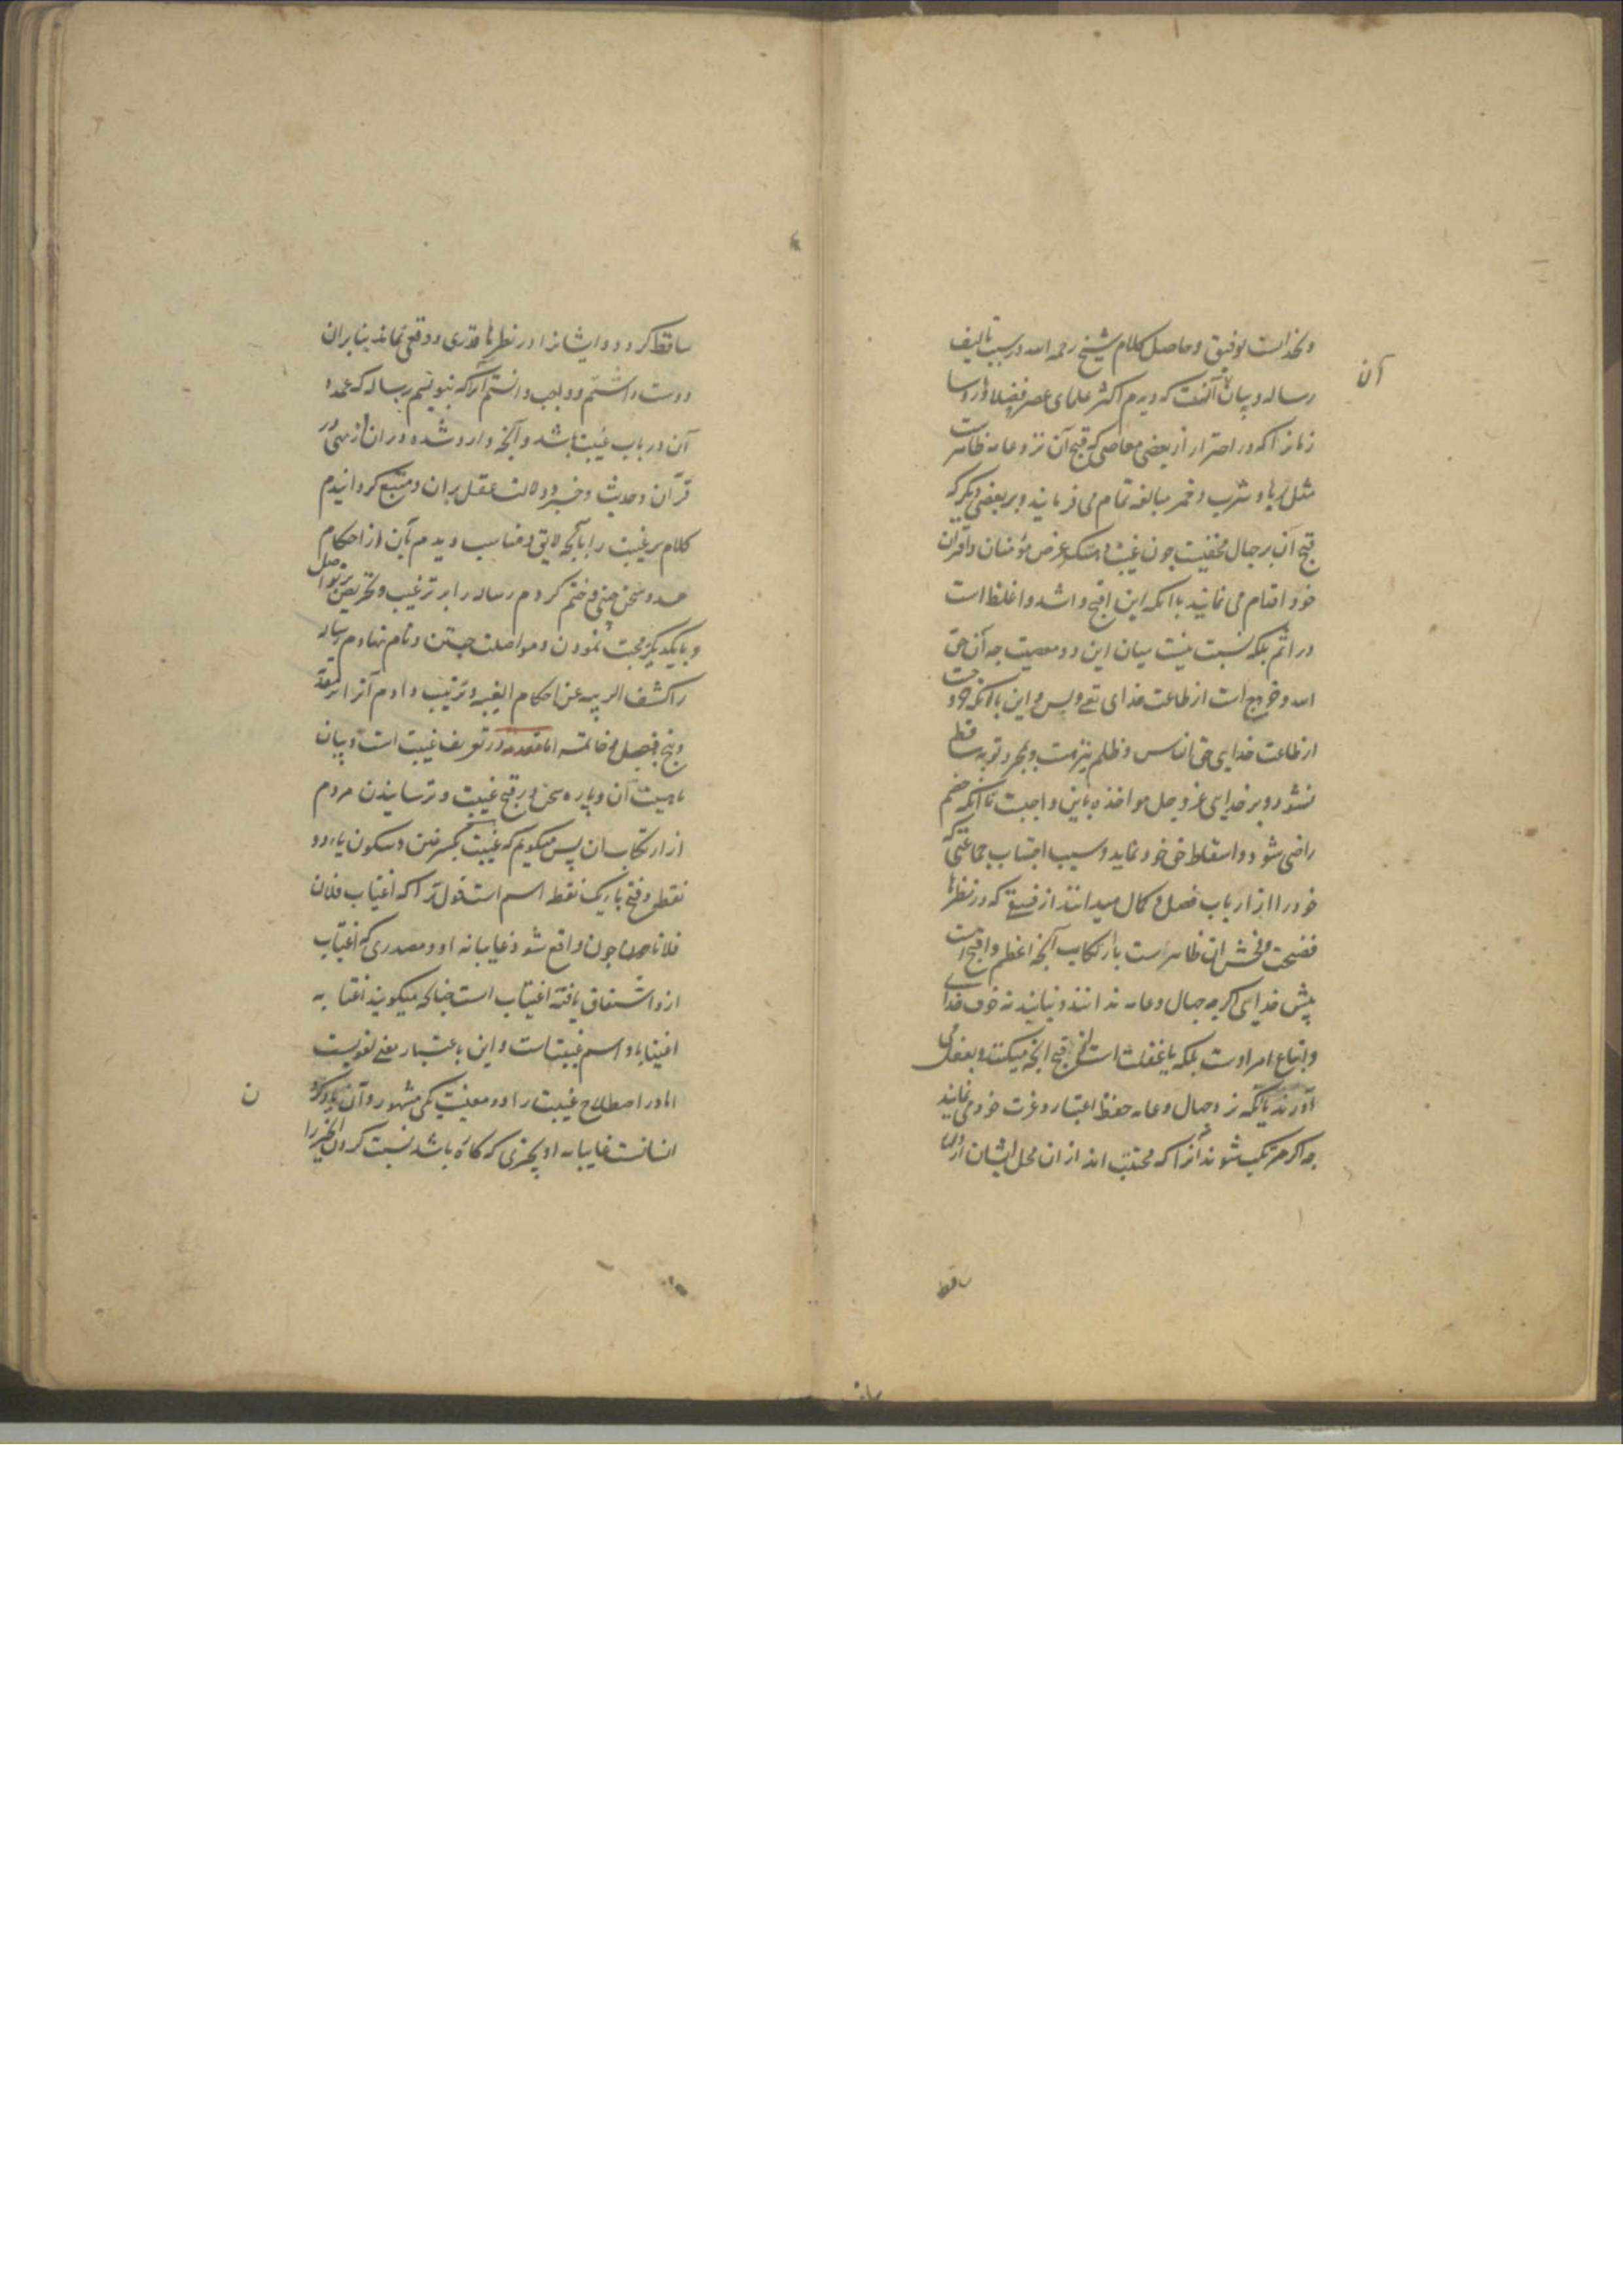 و بخداست توفیق و حاصل کلام شیخ رحمه الله در سبب تالیف
رساله و بیان آنست که دیدم اکثر علمای عصر و فضلا و روسا
آن
زمانرا که در احتراز از بعضی معاصی که قبح آن نزد عامه ظاهرست
مثل ربا و شرب خمر مبالغه تمام می فرمایند و بر بعضی دیگر که
قبح آن بر جهال مخفیست چون غیبت و هتک عرض مؤمنان و اقران
خود اقدام می نمایند با انکه این اقبح و اشد و اغلظ است
در اثم بلکه نسبت نیست میان این دو معصیت چه آن حق
الله و خروج است از طاعت خدای تعی و بس و این با انکه خروجست
از طاعت خدای حق الناس و ظلم نیز هست و بمجرد توبه ساقط
نشود و بر خدای عز و جل مواخذه باین واجبست تا انکه خصم
راضی شود و اسقاط حق خود نماید و سبب اجتناب جماعتی که
خود را از ارباب فضل و کمال میدانند از فسق که در نظرها
فضیحت و فحش ان ظاهر است بارتکاب آنچه اعظم و اقبح است
پیش خدای اگرچه جهال و عامه ندانند و نیابند نه خوف خدای
و اتباع امر اوست بلکه یا غفلت است از قبح انچه میکنند و بفعل می
آورند یا انکه نزد جهال و عامه حفظ اعتبار و عزت خود می نمایند
چه اگر مرتکب شوند آنرا که مجتنب اند از ان محل ایشان از دلها
ساقط
ساقط گردد و ایشانرا در نظرها قدری و وقعی نماند بنابران
دوست داشتم و واجب دانستم آنرا که بنویسم رساله که عمده
آن در باب غیبت باشد و آنچه وارد شده در ان از نهی در
قرآن و حدیث و خبر و دلالت عقل بران و متبع گردانیدم
کلام بر غیبت را بآنچه لایق و مناسب دیدم بآن از احکام
حسد و سخن چینی و ختم کردم رساله را بر ترغیب و تحریص بر تواصل
و بایکدیگر محبت نمودن و مواصلت جستن و نام نهادم رساله
را کشف الریبه عن احکام الغیبه و ترتیب دادم آنرا بر مقدمه
و پنج فصل و خاتمه اما مقدمه در تعریف غیبت است و بیان
ماهیت آن و پاره سخن در قبح غیبت و ترسانیدن مردم
از ارتکاب ان پس میگویم که غیبت بکسر غین و سکون یاء دو
نقطه و فتح باء یک نقطه اسم است قول ترا که اغتیاب فلان
فلانا چون واقع شود غایبانه او و مصدری که اغتیاب
ازو اشتقاق یافته اغتیاب است چنانکه میگویند اغتابه
اغتیابا و اسم غیبت است و این باعتبار معنی لغویست
اما در اصطلاح غیبت را دو معنیست یکی مشهور و آن یاد کردن
انسانست غایبانه او بچیزی که کاره باشد نسبت کردن
ن